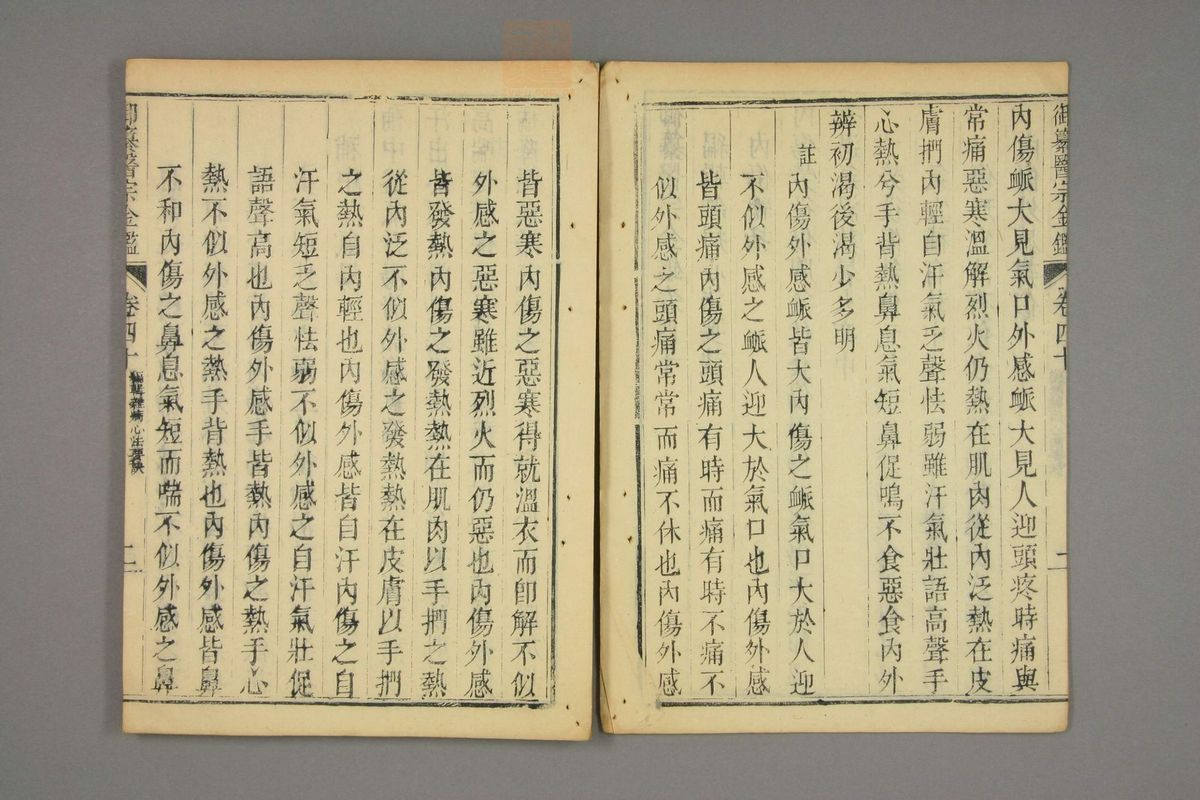 御纂醫宗金鑑 卷四十 二
內傷衇大見氣口外感衇大見人迎頭疼時痛與
常痛惡寒溫解烈火仍熱在肌肉從內泛熱在皮
膚捫內輕自汗氣乏聲怯弱雖汗氣壯語高聲手
心熱兮手背熱鼻息氣短鼻促鳴不食惡食內外
辨初渴後渴少多明
註 內傷外感衇皆大內傷之衇氣口大於人迎
不似外感之衇人迎大於氣口也內傷外感
皆頭痛內傷之頭痛有時而痛有時不痛不
似外感之頭痛常常而痛不休也內傷外感
皆惡寒內傷之惡寒得就溫衣而卽解不似
外感之惡寒雖近烈火而仍惡也內傷外感
皆發熱內傷之發熱熱在肌肉以手捫之熱
從內泛不似外感之發熱熱在皮膚以手捫
之熱自內輕也內傷外感皆自汗內傷之自
汗氣短乏聲怯弱不似外感之自汗氣壯促
語聲高也內傷外感手皆熱內傷之熱手心
熱不似外感之熱手背熱也內傷外感皆鼻
不和內傷之鼻息氣短而喘不似外感之鼻
御纂醫宗金鑑 卷四十 編輯雜病心法要訣 二